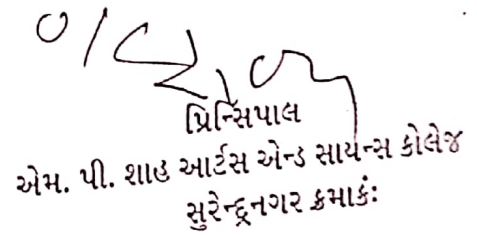 પ્રિન્સિપાલ
એમ. પી. શાહ આર્ટસ એન્ડ સાયન્સ કોલેજ
સુરેન્દ્રનગર ક્રમાકંઃ